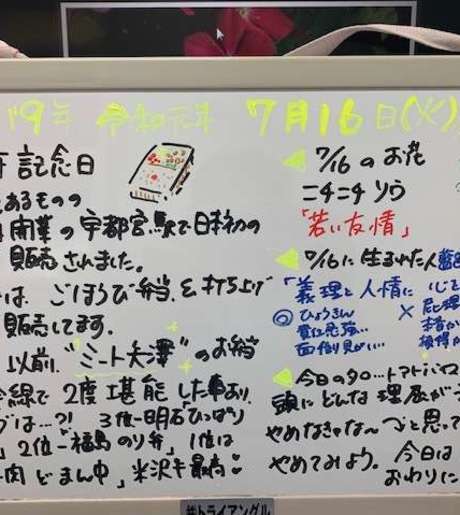 19年 令和元年 7月16日(火)
記念日
とあるものの
開業の宇都宮駅で日本初の
販売されました。
は、ごほうび弁当を打ち上げ
販売してます。
以前、"ミート矢澤"のお弁当
線で2度堪能した事あり
グは…?! 3位-明石ひっぱり
」2位-福島のり弁」1位は
肉どまん中」米沢牛最高♡
◀7/16のお花
ニチニチソウ
「若い友情」
◀7/16に生まれた人
「義理と人情に
◎ひょうきん
責任感強…
面倒見がいい…
×
◀今日の夕ロ…トマトパイロ
頭にどんな理屈が
やめなきゃな〜って思って
やめてみよう。今日は
おわりに
#トライアングル